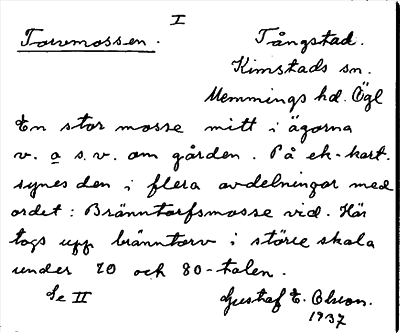 I
Torvmossen.
Tångstad.
Kimstads sn.
Memmings hd. Ögl
En stor mosse mitt i ägorna
v. a s.v. om gården. På ek-kart.
synes den i flera avdelningar med
ordet: Bränntorfsmosse vid. Här
togs upp bränntorv i större skala
under 70 och 80-talen.
Se II
Gustaf E. Olson.
1937